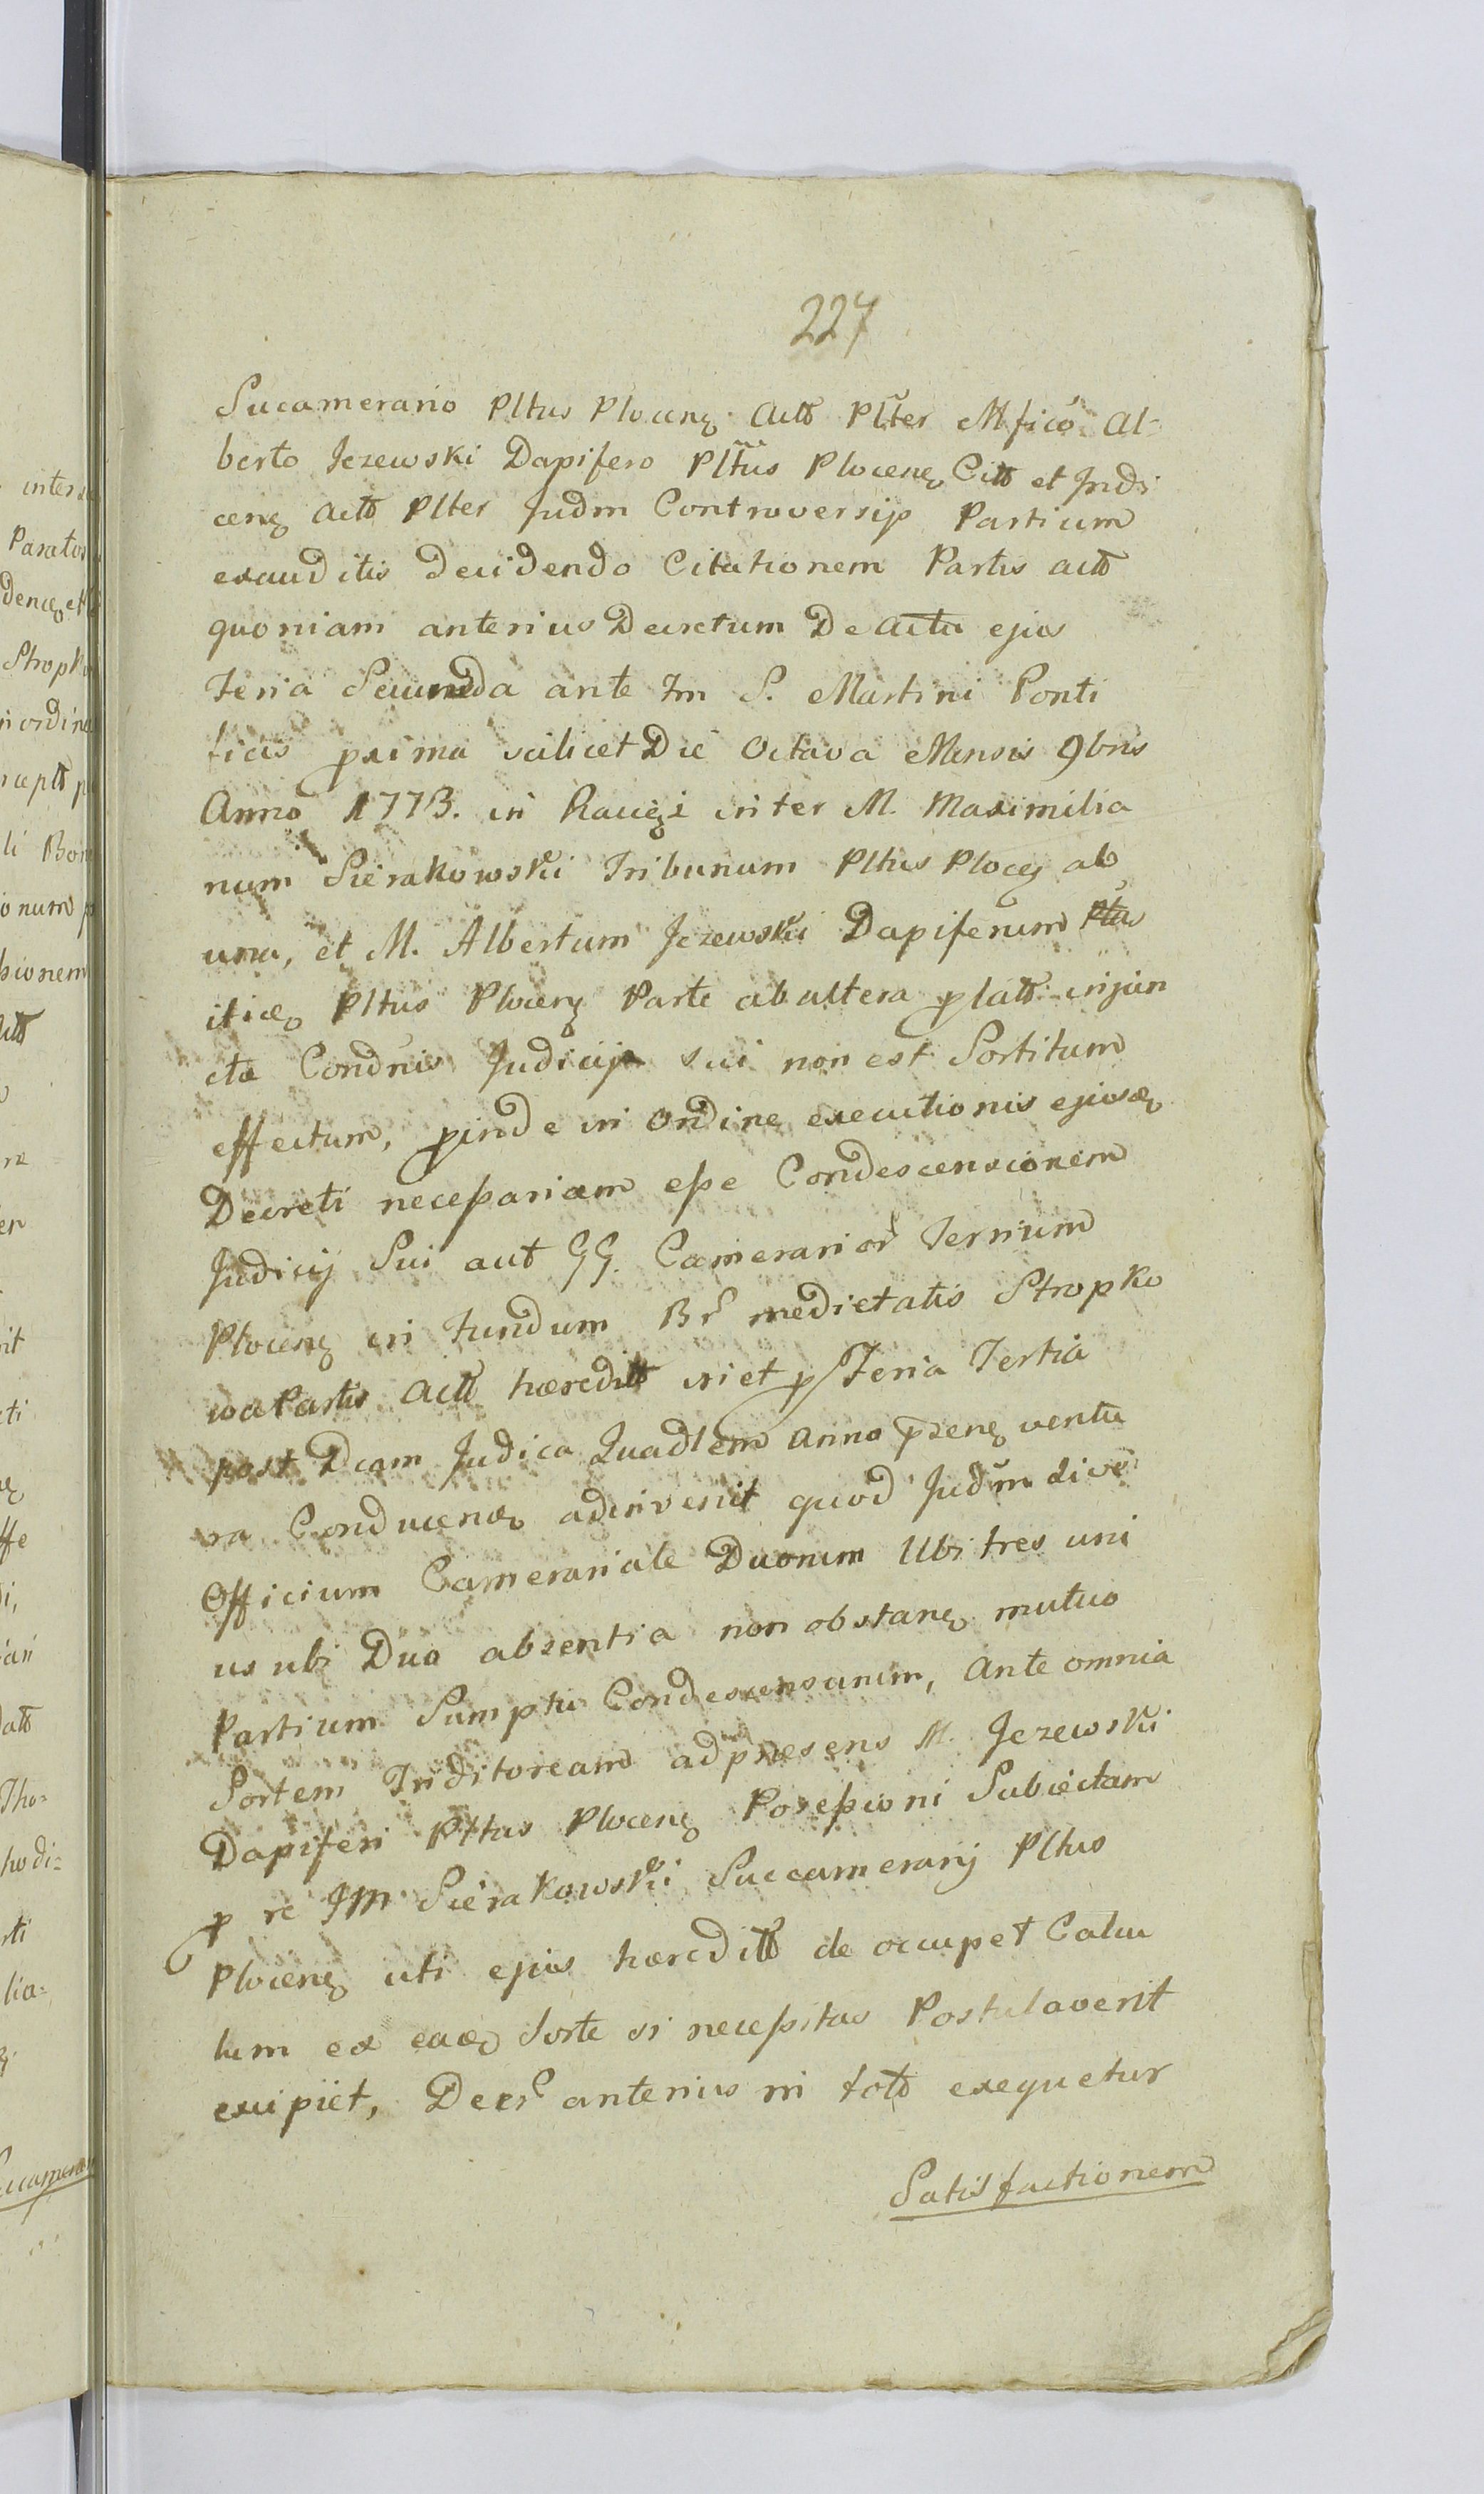 227
Sucamerario Pltus Plocenq Actô Plter Mfico Al-
berto Jezewski Dapifero Pltus Plocenq Citô et Indi
cenq Actô Plter Judm Controversijs Partium
exauditis Decidendo Citationem Partis actô
quoniam anterius Decretum De Actu ejus
Feria Secunda ante Fm S. Martini Ponti
ficis pxima scilicet Die Octava Mensis 9bris
Anno 1773. in Raciąż inter M. Maximilia
num Sierakowski Tribunum Pltus Plocen ab
una, et M. Albertum Jezewski Dapiferum
itidq Pltus Plocenq Parte ab altera platô injun
cta Condnis Judicij sui non est Sortitum
effectum, pinde in Ordine executionis ejusdq
Decreti necessariam esse Condescensionem
Judicij Sui aut GG. Camerarior Terrium
Plocenq in Fundum Br medietatis Stropko
wa Partis Actô hæreditô in et p Feria Tertia
post Dcam Judica Quadlem Anno pzenq ventu
ra Conducendq adinvenit quod Judm sive
Officium Camerariale Duorum Ubi tres uni
us ubi Duo absentia non obstanq mutuo
Partium Sumptu Condescensurum, Ante omnia
Sortem Inditoream ad præsens M. Jezewski
Dapiferi Pltus Plocenq Possessioni Subiectam
p re JM Sierakowski Succamerarij Pltus
Plocenq uti ejus hæreditô de occupet Calcu
lum ex eadq Sorte si necessitas Postulaverit
excipiet, Decr anterius in totô exequetur
Satisfactionem